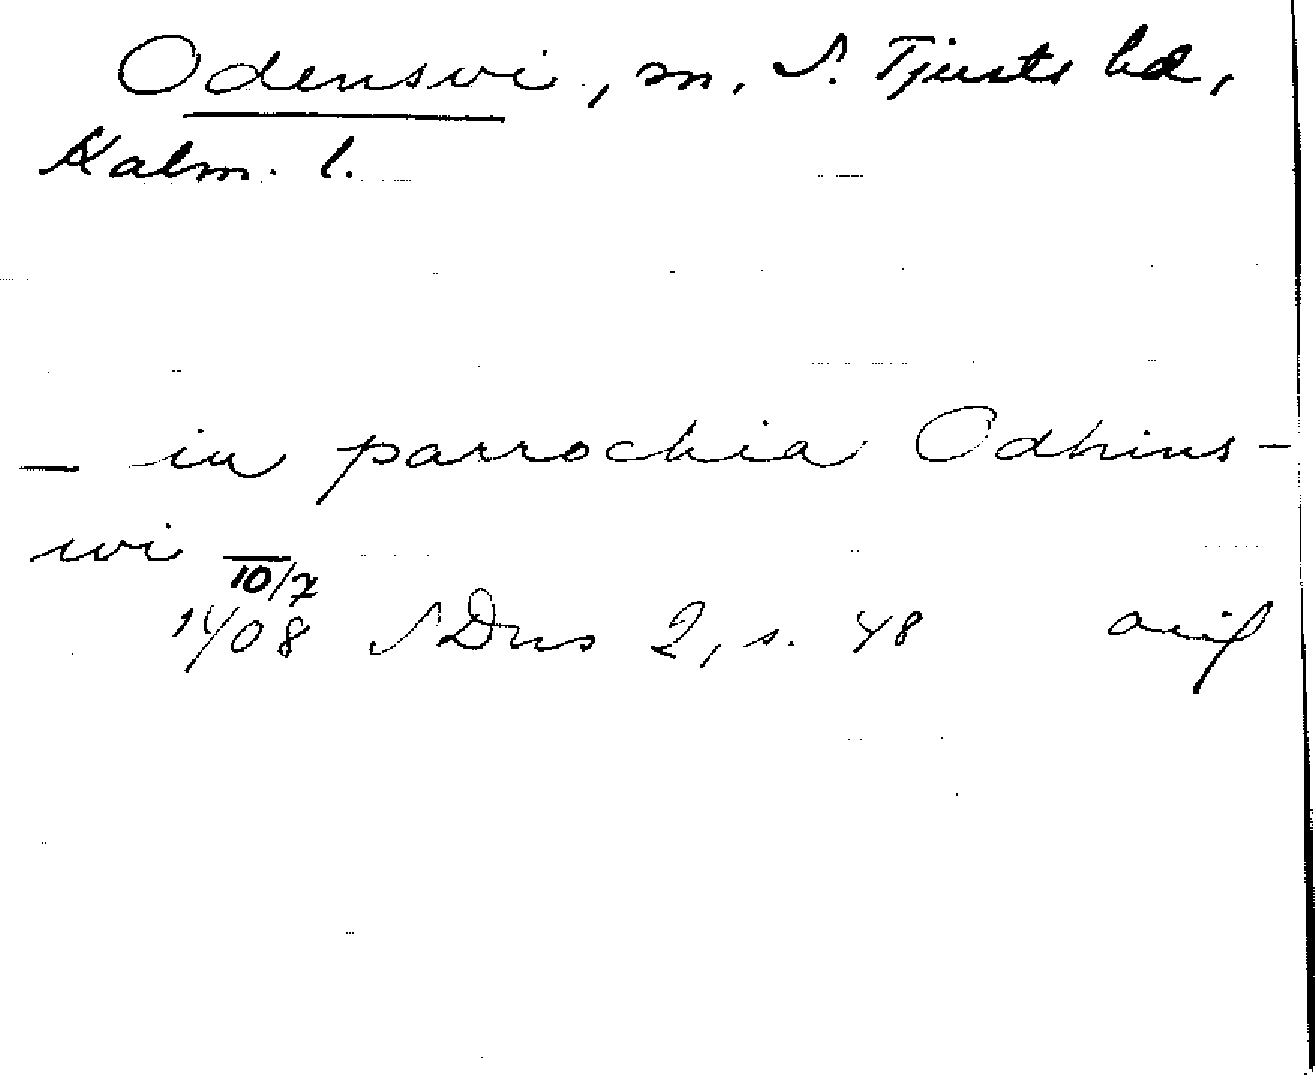 Odensvi, sn, S. Tjusts hd,
Kalm. l.
– in parrochia Odhins-
wi
10/7
1408 SDns 2, s. 48 orig